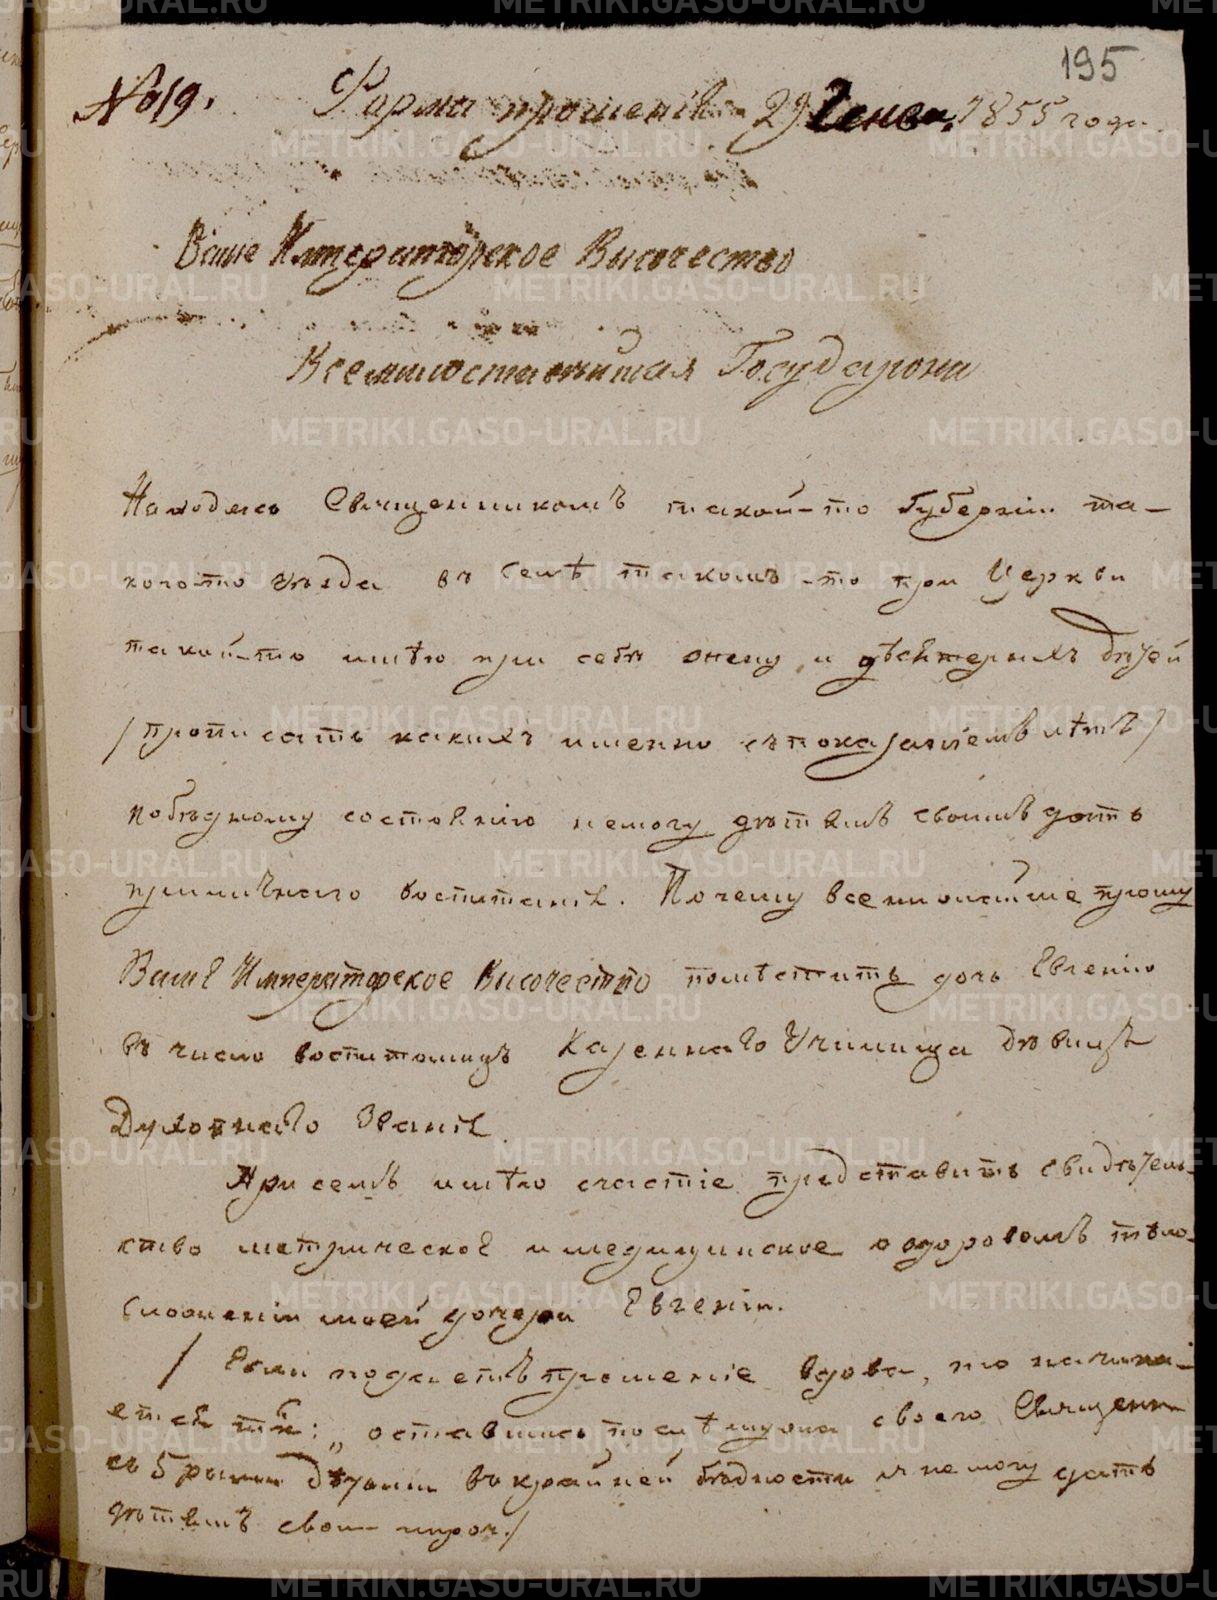 195
№ 19. Форма прошенія 29 Генва. 1855 года
Ваше Императорское Высочество
Всемилостивѣйшая Государыня
Находясь Священникомъ такой-то Губерніи та-
кого-то уѣзда въ селѣ такомъ-то при Церкви
такой-то имѣю при себѣ жену и дѣтей
/прописать какихъ именно съ показаніемъ лѣтъ/
по бѣдному состоянію не могу дѣтямъ своимъ дать
приличнаго воспитанія. Почему всемилостивѣйше прошу
Ваше Императорское Высочество помѣстить дочь Евгенію
въ число воспитанницъ Казеннаго Училища Дѣвицъ
Духовнаго Званія
При семъ имѣю счастіе представить свидѣтель-
ство метрическое и медицинское о здоровомъ тѣло-
сложеніи моей дочери Евгеніи.
/ Если подаетъ прошеніе вдова, то начина-
ется такъ: „ оставшись послѣ мужа своего Священни
съ 5рыми дѣтьми въ крайней бѣдности я не могу дать
дѣтямъ свои проч./
METRIKI.GASO-URAL.RU